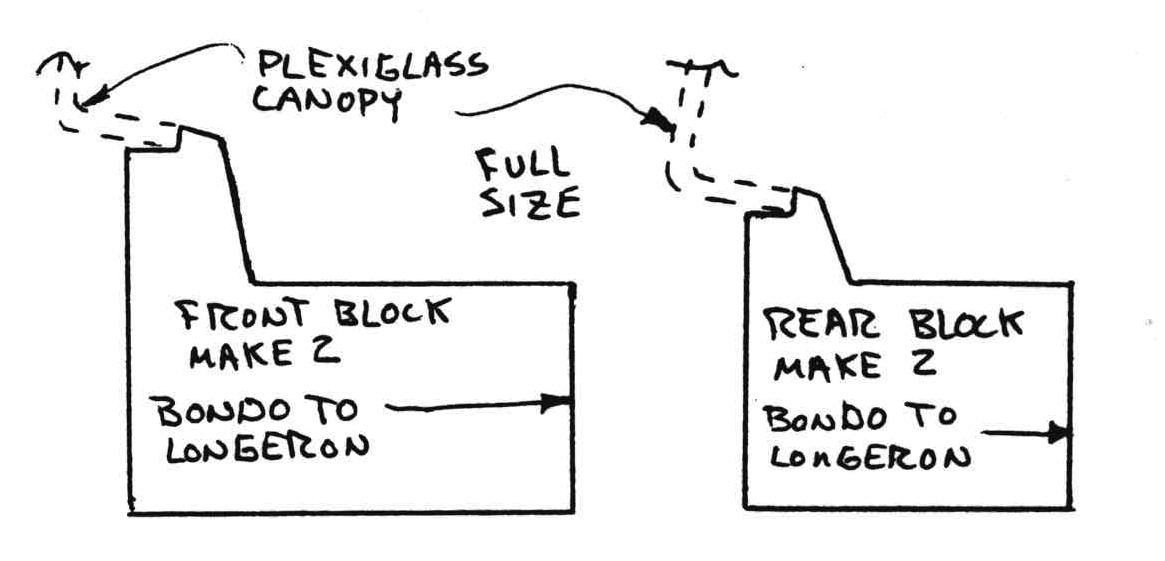 PLEXIGLASS
CANOPY
FULL
SIZE
FRONT BLOCK
MAKE 2
BONDO TO
LONGERON
REAR BLOCK
MAKE 2
BONDO TO
LONGERON